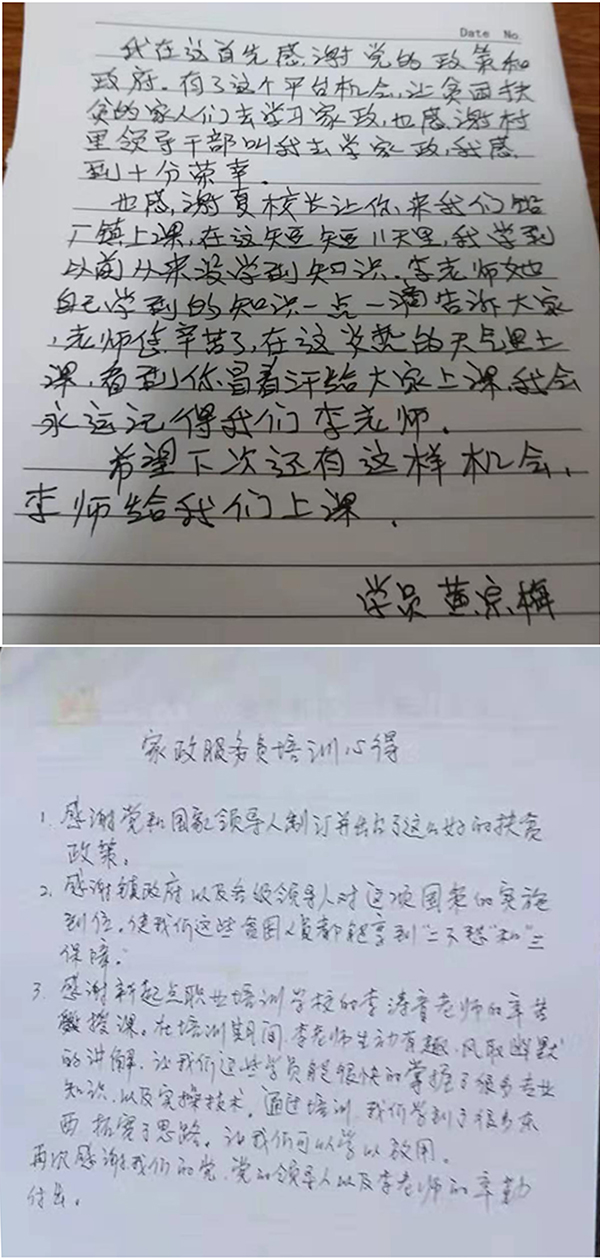 Date No.
我在这首先感谢党的政策和
政府。有了这个平台机会,让贫困扶
贫的家人们去学习家政,也感谢村
里领导干部叫我去学家政,我感
到十分荣幸.
也感谢夏校长让你来我们
厂镇上课,在这短短11天里,我学到
以前从来没学到知识.李老师她
自己学到的知识一点一滴告诉大家
,老师您辛苦了,在这炎热的天气里上
课,看到你冒着汗给大家上课,我会
永远记得我们李老师.
希望下次还有这样机会,
李师给我们上课.
学员 黄宗梅
家政服务员培训心得
1. 感谢党和国家领导人制订并出台了这么好的扶贫
政策。
2. 感谢镇政府以及各级领导人对这项国策的实施
到位。使我们这些贫困人员都能享到“二不愁”和“三
保障”。
3. 感谢新起点职业培训学校的李涛老师的辛苦
授课。在培训期间,李老师生动有趣、风取幽默
的讲解,让我们这些学员能很快的掌握了很多专业
知识,以及实操技术。通过培训,我们学到了很多东
西,拓宽了思路。让我们可以学以致用。
再次感谢我们的党、党的领导人以及李老师的辛勤
付出。